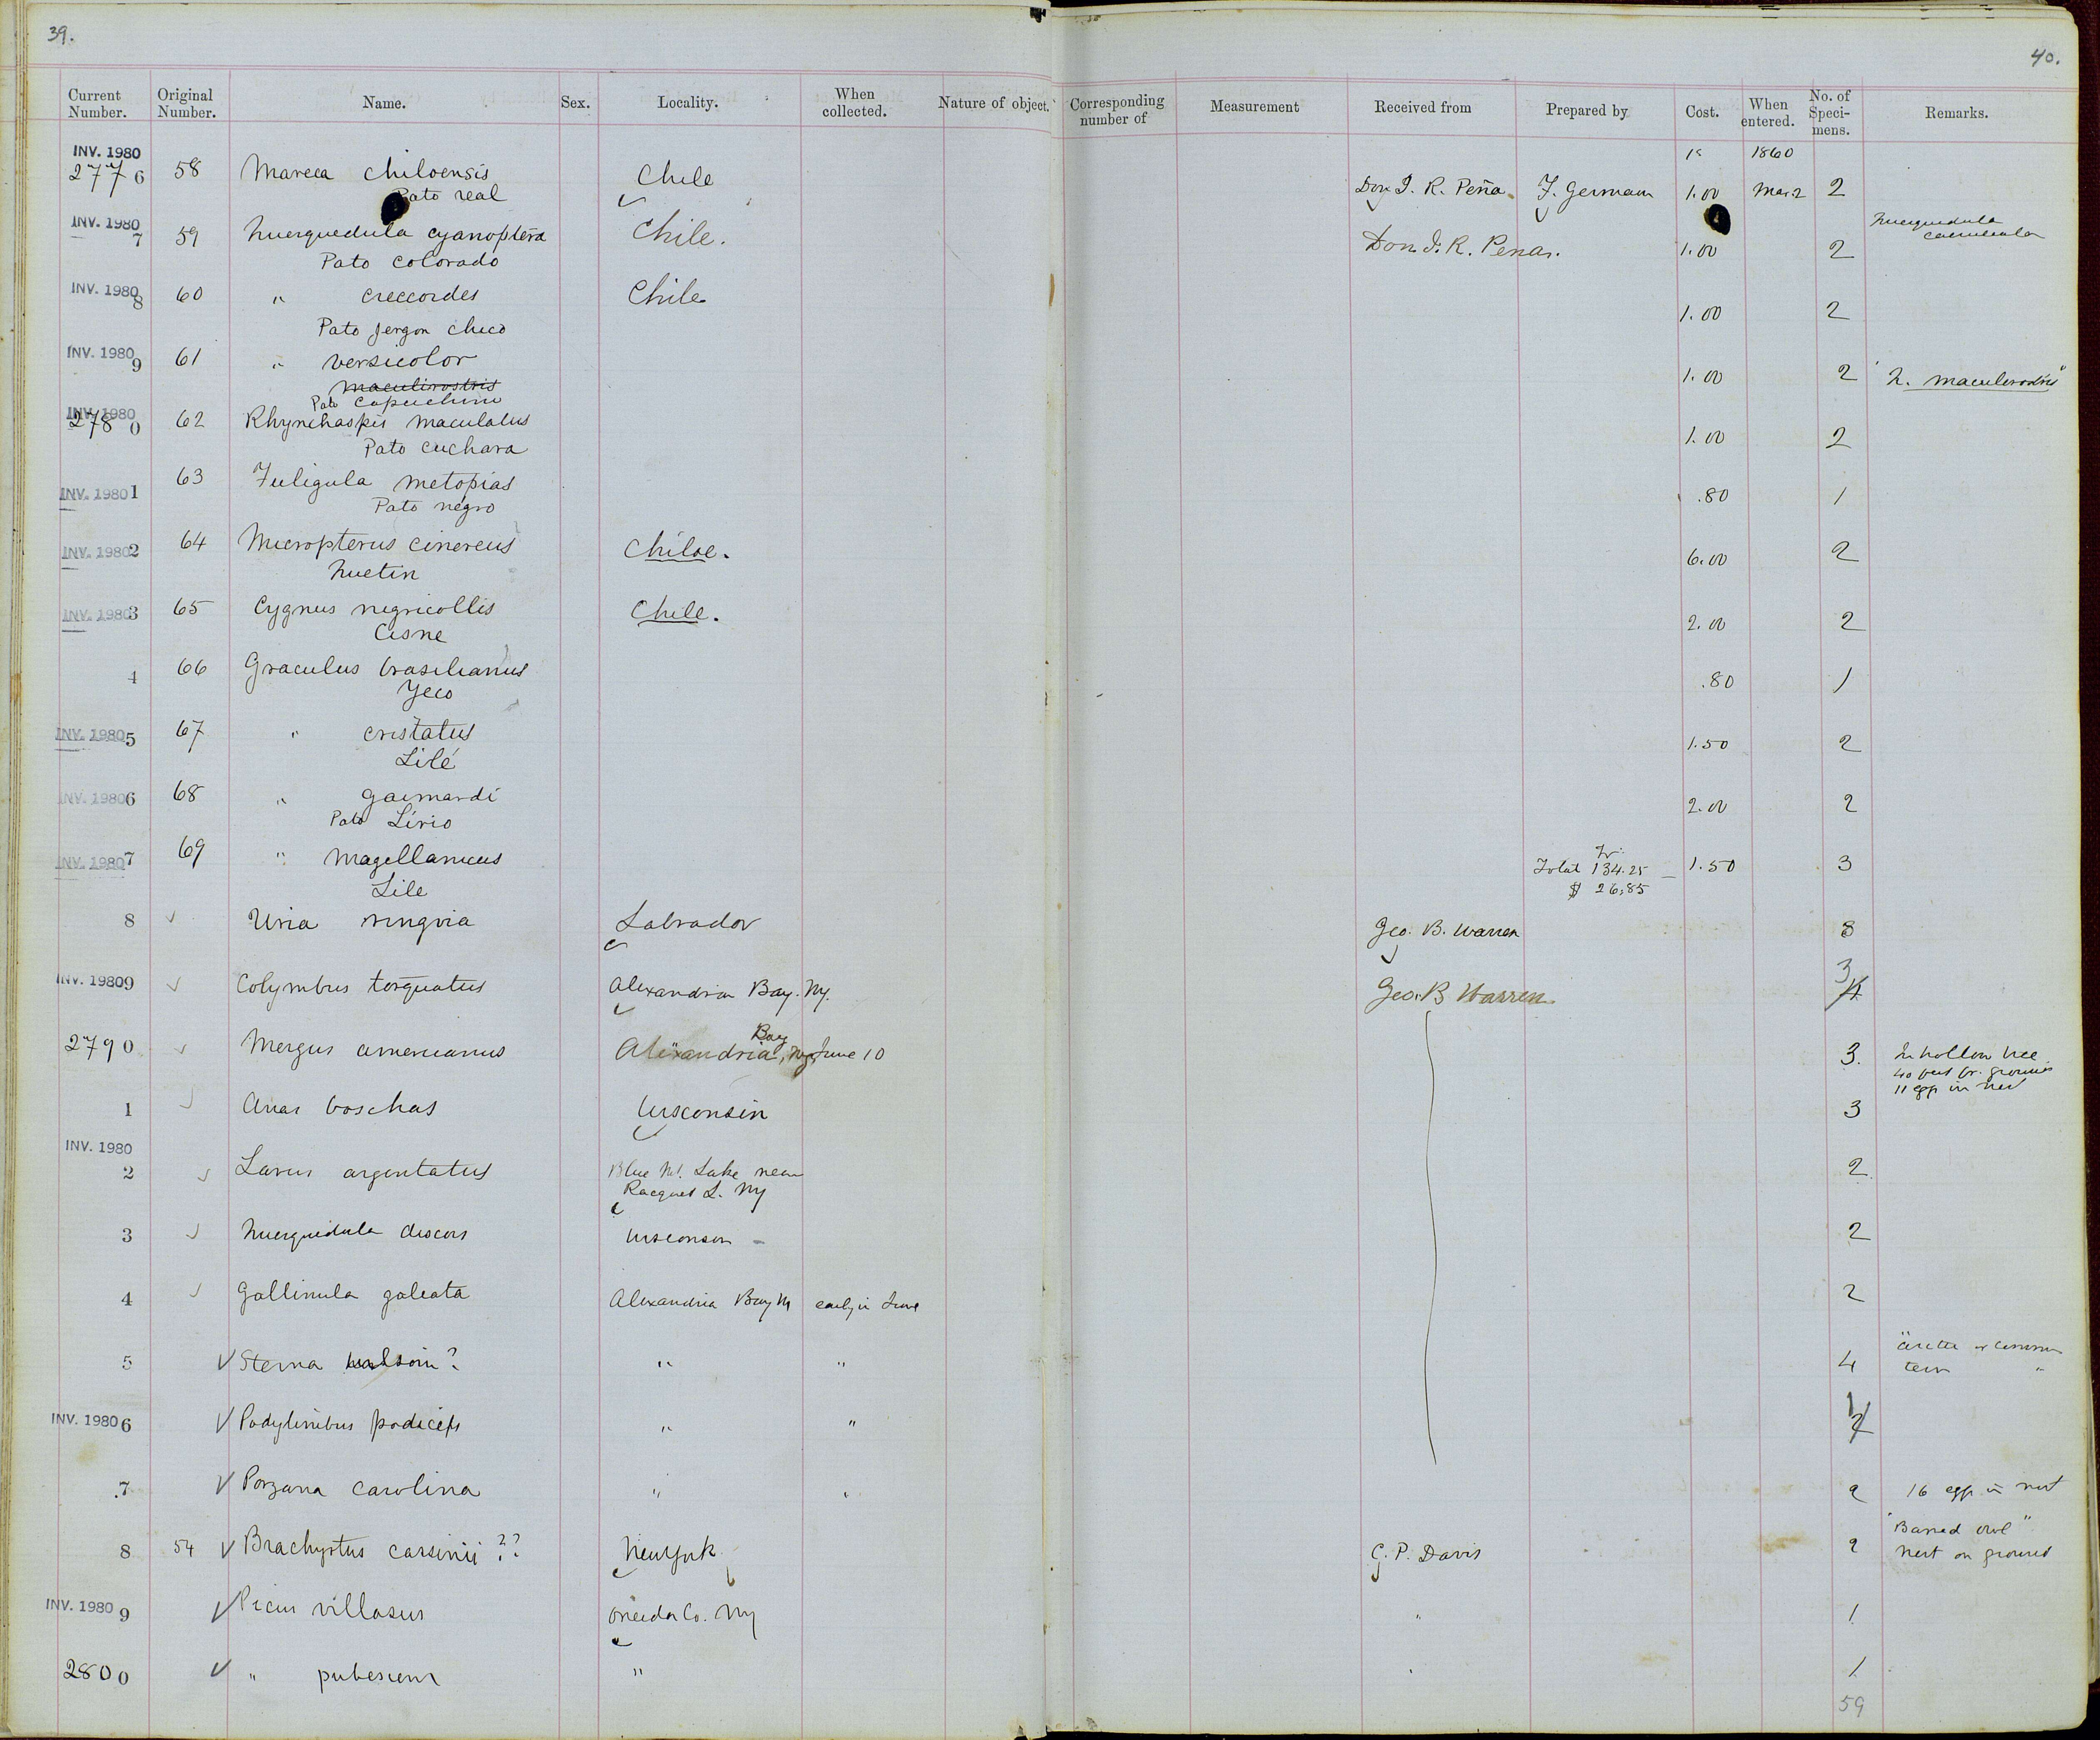 39.
40.
Current Number. Original Number. Name. Sex. Locality. When collected. Nature of object. Corresponding number of Measurement Received from Prepared by Cost. When entered. No. of Specimens. Remarks.
INV. 1980 1860
2776 58 Mareca chiloensis Chile Don I. R. Peña F. Germain 1.00 Mar. 2 2
Pato real
INV. 1980 Querquedula
7 59 Querquedula cyanoptera Chile. Don I. R. Pena. 1.00 2 caeruleata
Pato colorado
INV. 1980 8 60 " creccoides Chile 1.00 2
Pato jergon chico
INV. 1980 9 61 " versicolor 1.00 2 "Q. maculirostris"
maculirostris
Pato Capuchino
INV. 1980
2780 62 Rhynchaspis maculatus 1.00 2
Pato cuchara
INV. 1980 1 63 Fuligula metopias .80 1
Pato negro
INV. 1980 2 64 Micropterus cinereus Chiloe. 6.00 2
Quetin
INV. 1980 3 65 Cygnus nigricollis Chile. 2.00 2
Cisne
4 66 Graculus brasilianus .80 1
Yeco
INV. 1980 5 67 " cristatus 1.50 2
Lilé
INV. 1980 6 68 " gaimardi 2.00 2
Pato Lirio
INV. 1980 7 69 " Magellanicus Total 134.25 1.50 3
Lile $ 26.85
8 ✓ Uria ringvia Labrador Geo. B. Warren 3
INV. 1980 9 ✓ Colymbus torquatus Alexandria Bay. NY. Geo. B Warren 3 4
2790 ✓ Mergus americanus Alexandria Bay, NY June 10 3. In hollow tree
40 feet fr. ground
11 eggs in nest
1 ✓ Anas boschas Wisconsin 3
INV. 1980
2 ✓ Larus argentatus Blue Mt. Lake near 2
Racquet L. NY
3 ✓ Querquedula discors Wisconson 2
4 ✓ Gallinula galeata Alexandria Bay NY early in June 2
5 ✓ Sterna wilsoni? " " 4 "arctic or common
tern "
INV. 1980 6 ✓ Podylimbus podiceps " " 1 2
7 ✓ Porzana carolina " " 2 16 eggs in nest
8 54 ✓ Brachyotus cassinii ?? New York C. P. Davis 2 "Barred owl"
Nest on ground
INV. 1980 9 ✓ Picus villosus Oneida Co. NY " 1
2800 ✓ " pubescens " " 1
59